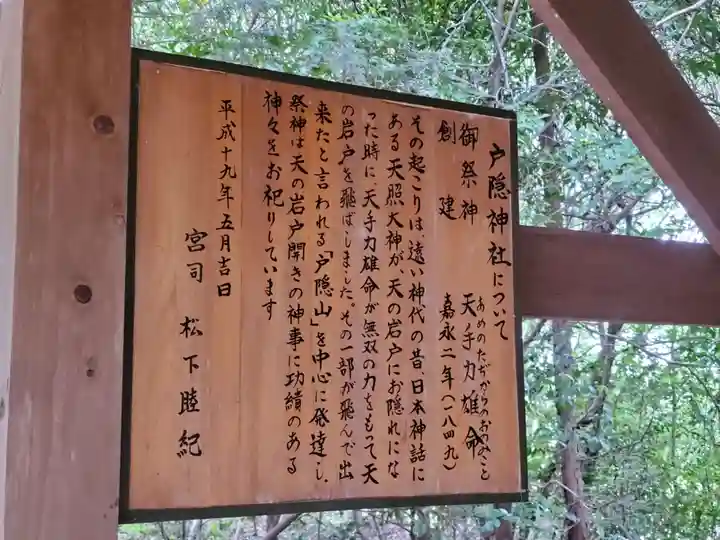 戸隠神社について
御祭神 天手力雄命
あめのたぢからのおのみこと
創建 嘉永二年(一八四九)
その起こりは、遠い神代の昔、日本神話に
ある天照大神が、天の岩戸にお隠れにな
った時に、天手力雄命が無双の力をもって天
の岩戸を飛ばしました。その一部が飛んで出
来たと言われる「戸隠山」を中心に発達し、
祭神は天の岩戸開きの神事に功績のある
神々をお祀りしています
平成十九年五月吉日
宮司 松下睦紀